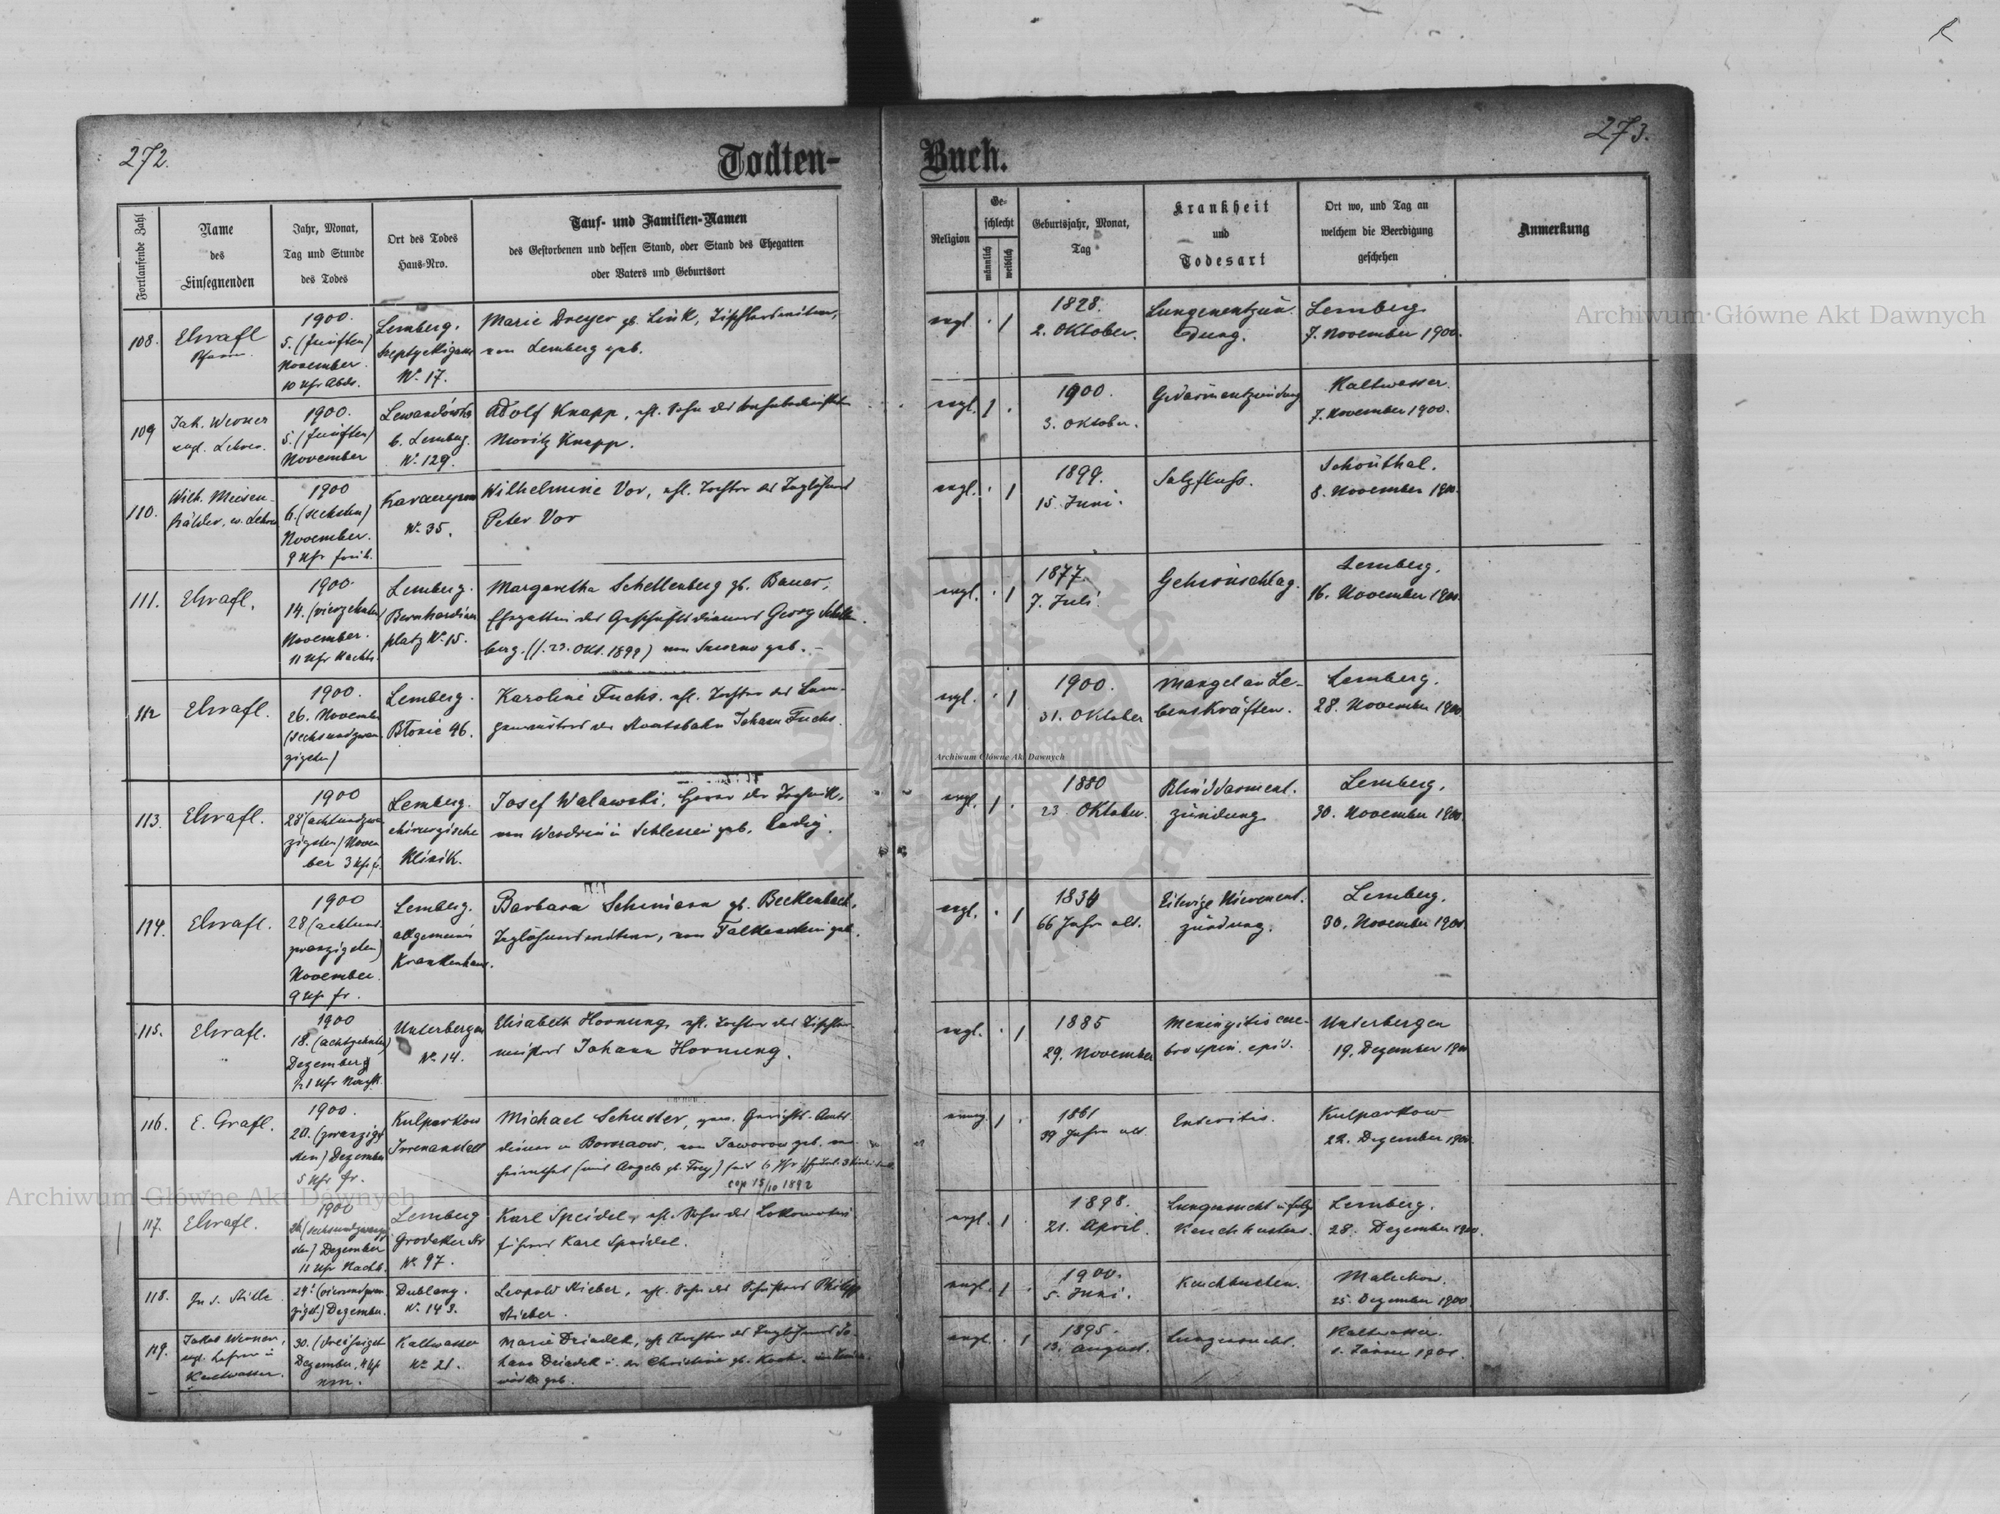 272.
Todten-
Buch.
273.
Fortlaufende Zahl
Name
des
Einsegnenden
Jahr, Monat,
Tag und Stunde
des Todes
Ort des Todes
Haus-Nro.
Tauf- und Familien-Namen
des Gestorbenen und dessen Stand, oder Stand des Ehegatten
oder Vaters und Geburtsort
Religion
Ge-
schlecht
männlich
weiblich
Geburtsjahr, Monat,
Tag
Krankheit
und
Todesart
Ort wo, und Tag an
welchem die Beerdigung
geschehen
Anmerkung
108.
1900.
5. (fünften)
November.
10 Uhr Abds.
Lemberg.
N. 17.
Marie Dreyer gb. Link,
von Lemberg geb.
evgl.
1828.
2. Oktober.
Lungenentzün-
dung.
Lemberg
7. November 1900.
109
Jak. Werner
evgl. Lehrer.
1900.
5. (fünften)
November
b. Lemberg.
N. 129.
Adolf Knapp, ehl. Sohn des
Moritz Knapp.
evgl.
1900.
3. Oktober.
Gedärmentzündung
Kaltwasser.
7. November 1900.
110.
1900
6. (sechsten)
November.
9 Uhr früh.
N. 35.
Wilhelmine Vor, ehl. Tochter des Taglöhners
Peter Vor
evgl.
1899.
15. Juni.
Salzfluss.
Schönthal.
8. November 1900.
111.
1900.
14. (vierzehnten)
November.
11 Uhr Nachts.
Lemberg.
Bernhardiner
platz N. 15.
Margaretha Schellenberg gb. Bauer,
Ehegattin des Geschäftsdieners Georg Schellen-
berg. (/. 23. Okt. 1899) von geb. -
evgl.
1877.
7. Juli.
Gehirnschlag.
Lemberg.
16. November 1900.
112
1900.
26. November
(sechsundzwan
zigsten)
Lemberg.
Błonie 46.
Karoline Fuchs. ehl. Tochter des
der Staatsbahn Johann Fuchs.
evgl.
1900.
31. Oktober
Mangel an Le-
benskräften.
Lemberg.
28. November 1900
113.
1900
28 (achtundzwan
zigsten) Novem
ber 3 Uhr fr.
Lemberg.
chirurgische
Klinik.
Josef Walawski, Hörer der Technik,
in Schlesien geb. ledig.
evgl.
1880
23. Oktober.
Blinddarment-
zündung
Lemberg.
30. November 1900.
114.
1900
28 (achtund
zwanzigsten)
November.
9 Uhr fr.
Lemberg.
allgemeines
Krankenhaus.
Barbara Schimann gb. Beckenbach,
von Falkenstein geb.
evgl.
1834
66 Jahre alt.
Eitrige Nierenent-
zündung.
Lemberg.
30. November 1900.
115.
1900
18. (achtzehnten)
Dezember
Unterbergen
N. 14.
Elisabeth Hornung, ehl. Tochter des Tischler-
meisters Johann Hornung.
evgl.
1885
29. November
Meningitis cere-
bro spin. epid.
Unterbergen
19. Dezember 1900
116.
E. Grafl.
1900.
20. (zwanzig
sten) Dezember
5 Uhr fr.
Kulparkow
Irrenanstalt
Michael Schuster, gew. Gerichts-Amts
diener in von Jaworow geb. ver
heirathet (mit Angela gb. Frey) seit 6 Jhr.
cop 15/10 1892
1861
39 Jahre alt
Enteritis.
Kulparkow
22. Dezember 1900.
117.
1900
26. (sechsundzwanzig
sten) Dezember
11 Uhr Nachts.
Lemberg
Grodeker Str
N. 97.
Karl Speidel, ehl. Sohn des Lokomotiv-
führers Karl Speidel.
evgl.
1898.
21. April
Lungensucht infolge
Keuchhustens.
Lemberg.
28. Dezember 1900.
118.
24. (vierundzwan
zigst.) Dezember.
Dublany.
N. 143.
Leopold Stieber, ehl. Sohn des Schusters Philipp
Stieber.
evgl.
1900.
5. Juni.
Keuchhusten.
Malechow.
25. Dezember 1900.
119.
Jakob Werner,
evgl. Lehrer in
Kaltwasser.
30. (dreissigst
Dezember, 4 Uhr
nm.
Kaltwasser
N. 21.
Marie Driadek, ehl. Tochter des Taglöhners Jo-
hann Driadek u. der Christine gb. Koch.
geb.
evgl.
1895.
13. August.
Lungensucht.
Kaltwasser.
1. Jänner 1901.
Archiwum Główne Akt Dawnych
Archiwum Główne Akt Dawnych
Archiwum Główne Akt Dawnych